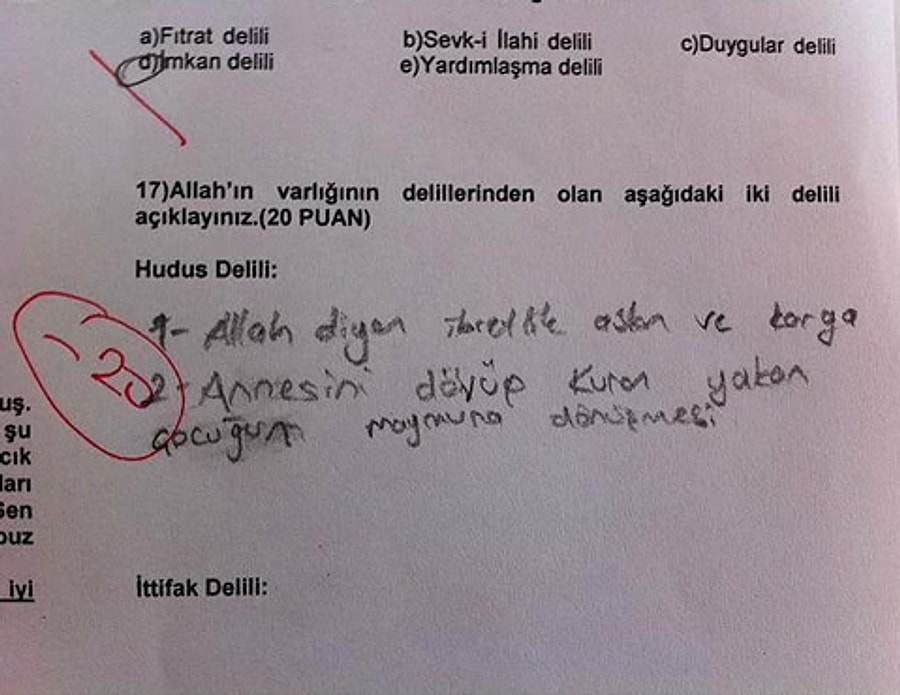 a)Fıtrat delili b)Sevk-i İlahi delili c)Duygular delili
d)İmkan delili e)Yardımlaşma delili
17)Allah'ın varlığının delillerinden olan aşağıdaki iki delili
açıklayınız.(20 PUAN)
Hudus Delili:
1- Allah diyen aslan ve karga
-20
2- Annesini dövüp Kuran yakan
çocuğun maymuna dönüşmesi
uş.
şu
cık
ları
Sen
puz
iyi
İttifak Delili: